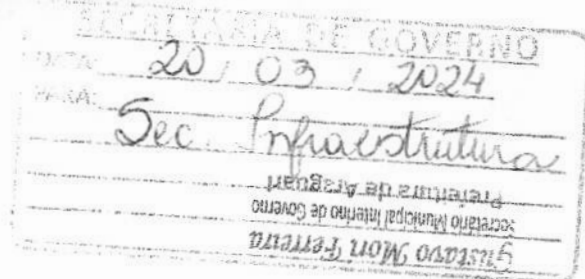 SECRETARIA DE GOVERNO
DATA: 20 / 03 / 2024
PARA:
Sec. Infraestrutura
Gustavo Mori Ferreira
Secretário Municipal Interino de Governo
Prefeitura de Araguari